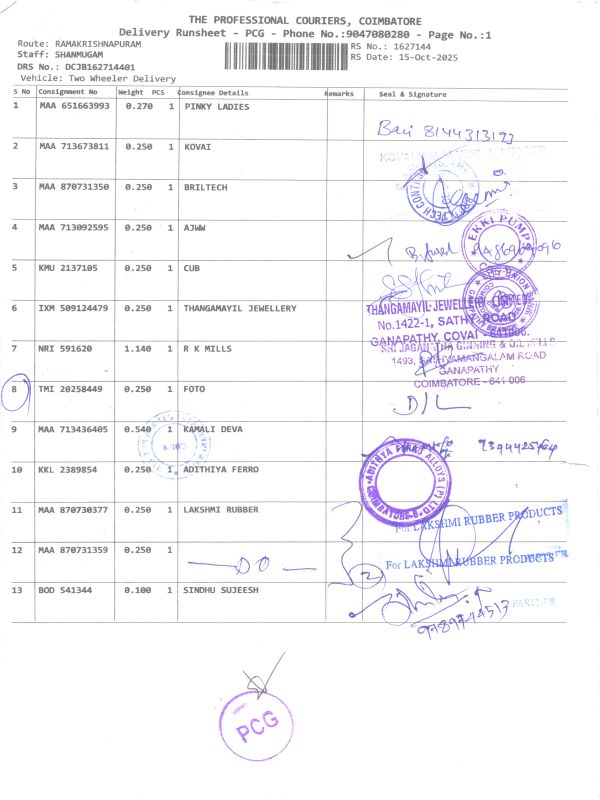 THE PROFESSIONAL COURIERS, COIMBATORE
Delivery Runsheet - PCG - Phone No.:9047080280 - Page No.:1
Route: RAMAKRISHNAPURAM
RS No.: 1627144
Staff: SHANMUGAM
RS Date: 15-Oct-2025
DRS No.: DCJB162714401
Vehicle: Two Wheeler Delivery
S No Consignment No Weight PCS Consignee Details Remarks Seal & Signature
1 MAA 651663993 0.270 1 PINKY LADIES
8144313193
2 MAA 713673811 0.250 1 KOVAI
3 MAA 870731350 0.250 1 BRILTECH
4 MAA 713092595 0.250 1 AJWW
EKKI PUMPS
5 KMU 2137105 0.250 1 CUB
CITY UNION BANK
6 IXM 509124479 0.250 1 THANGAMAYIL JEWELLERY
THANGAMAYIL JEWELLERY LIMITED
No.1422-1, SATHY ROAD
GANAPATHY, COVAI - 641006.
7 NRI 591620 1.140 1 R K MILLS
SRI JAGANATHA GINNING & OIL MILLS
1493, SATHYAMANGALAM ROAD
GANAPATHY
COIMBATORE - 641 006
8 TMI 20258449 0.250 1 FOTO
D/L
9 MAA 713436405 0.540 1 KAMALI DEVA
10 KKL 2389854 0.250 1 ADITHYA FERRO
ADITHYA FERRO ALLOYS (P) LTD
COIMBATORE-6
11 MAA 870730377 0.250 1 LAKSHMI RUBBER
For LAKSHMI RUBBER PRODUCTS
12 MAA 870731359 0.250 1
DO
For LAKSHMI RUBBER PRODUCTS
2
13 BOD 541344 0.100 1 SINDHU SUJEESH
9789774513
PCG